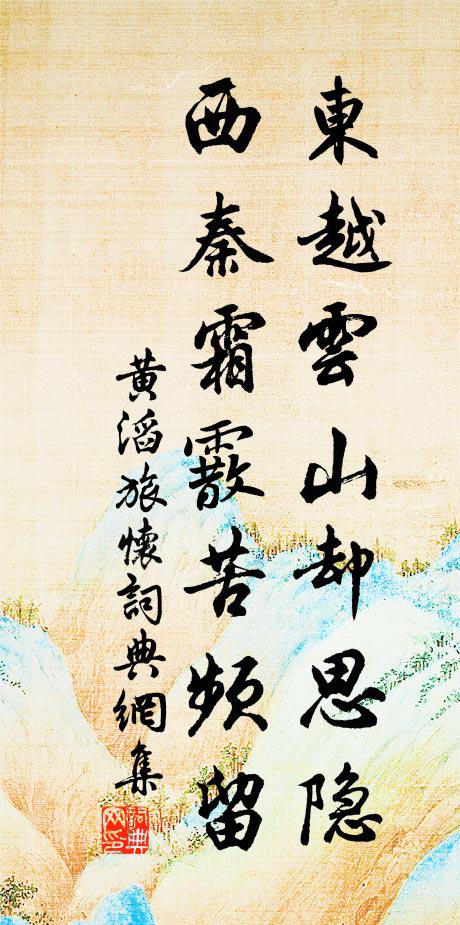 東越雲山却思隐
西秦霜霰苦頻留
黄滔旅懷詞典網集
詞典网印